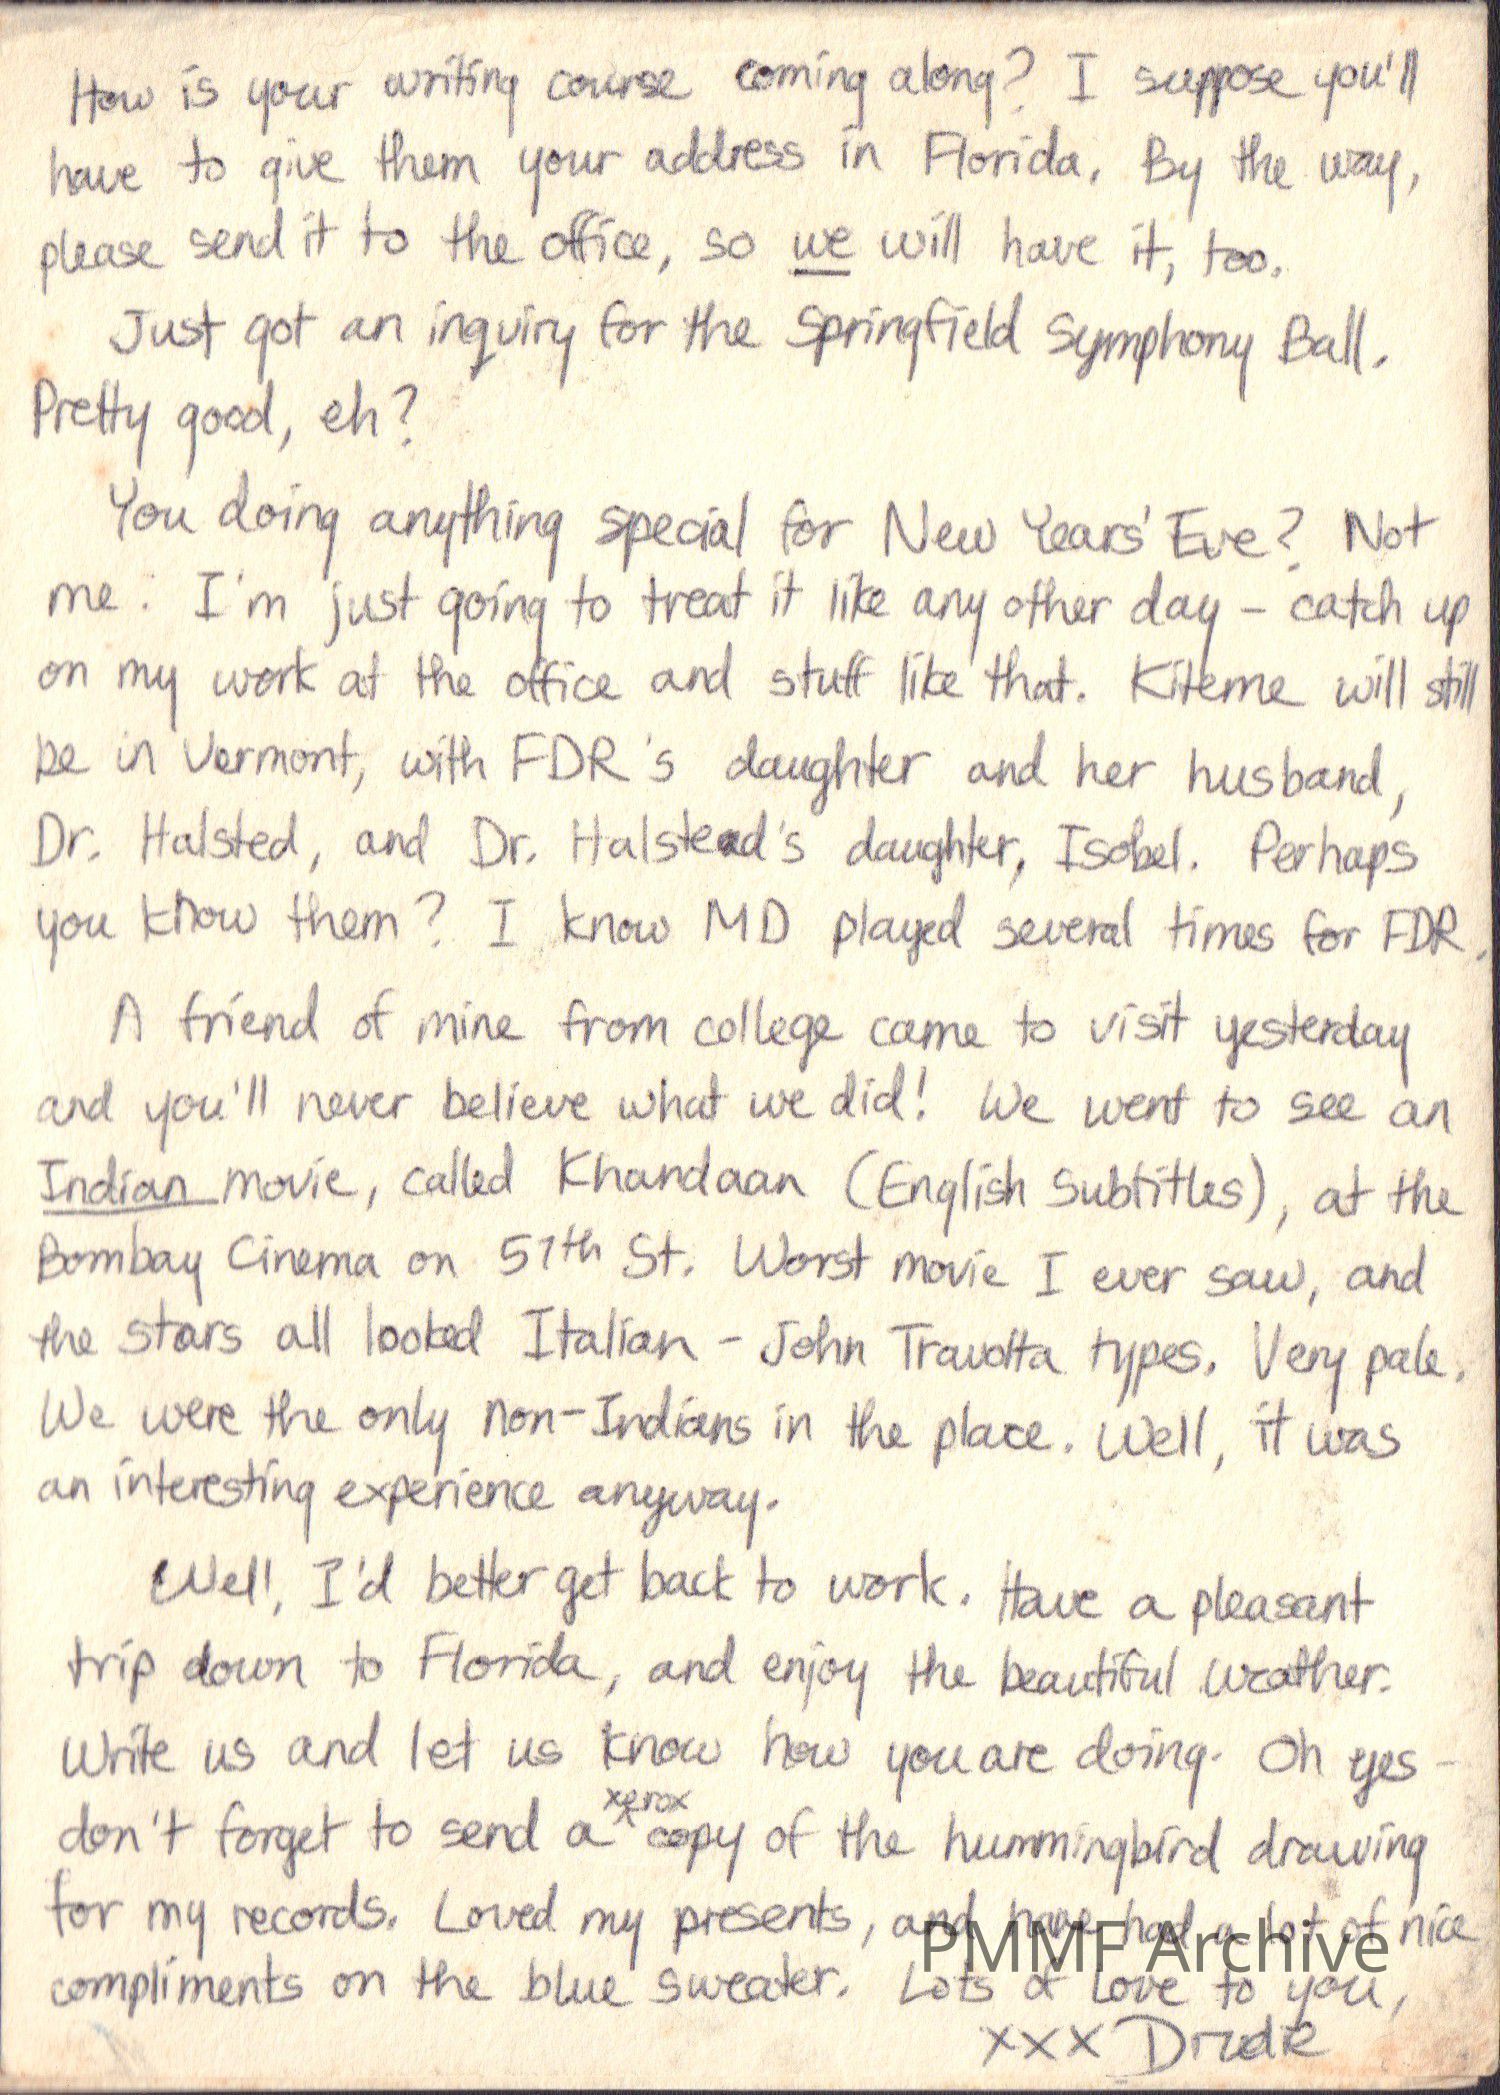 How is your writing course coming along? I suppose you'll
have to give them your address in Florida. By the way,
please send it to the office, so we will have it, too.
Just got an inquiry for the Springfield Symphony Ball.
Pretty good, eh?
You doing anything special for New Years' Eve? Not
me. I'm just going to treat it like any other day - catch up
on my work at the office and stuff like that. Kiteme will still
be in Vermont, with FDR's daughter and her husband,
Dr. Halsted, and Dr. Halstead's daughter, Isobel. Perhaps
you know them? I know MD played several times for FDR.
A friend of mine from college came to visit yesterday
and you'll never believe what we did! We went to see an
Indian movie, called Khandaan (English Subtitles), at the
Bombay Cinema on 57th St. Worst movie I ever saw, and
the stars all looked Italian - John Travolta types. Very pale.
We were the only non-Indians in the place. Well, it was
an interesting experience anyway.
Well, I'd better get back to work. Have a pleasant
trip down to Florida, and enjoy the beautiful weather.
Write us and let us know how you are doing. Oh yes -
don't forget to send a xerox copy of the hummingbird drawing
for my records. Loved my presents, and have had a lot of nice
compliments on the blue sweater. Lots of love to you,
xxx Drudie
PMMF Archive